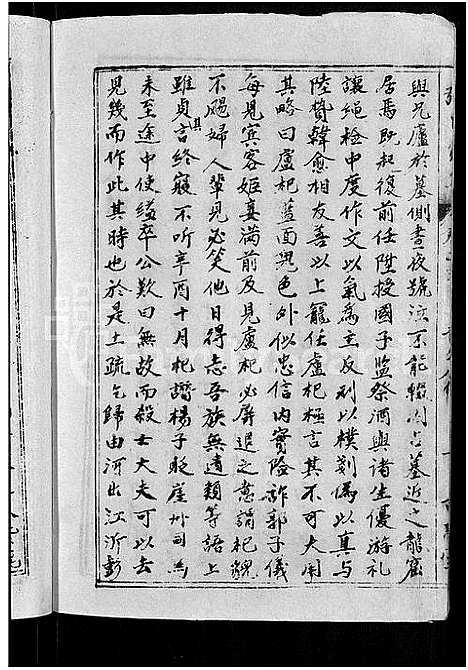 與兄廬於墓側晝夜號泣不能輟聞占墓近之龍窟
居焉既起復前任陞授國子監祭酒與諸生優游礼
讓繩檢中度作文以氣為主反刓以樸剗僞以真与
陸贄韓愈相友善以上寵任盧杞極言其不可大用
其略曰盧杞藍面鬼色外似忠信内實險詐郭子儀
每見賓客姬妾滿前及見盧杞必屏退之意謂杞貌
不颺婦人輩見必笑他日得志吾族無遺類等語上
雖貞其言終寢不听辛酉十月杞譖楊子貶崖州司馬
未至途中使縊卒公歎曰無故而殺士大夫可以去
見幾而作此其時也於是上疏乞歸由河出江沂彭